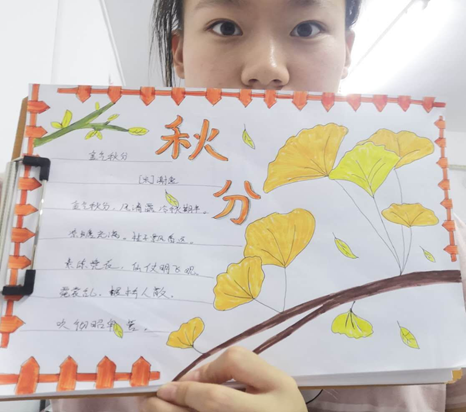 秋分
金气秋分
[宋]谢逸
金气秋分,风清露冷秋期半。
凉蟾光满。桂子飘香远。
素练宽衣,仙仗明飞观。
霓裳乱,银桥人散。
吹彻昭华管。